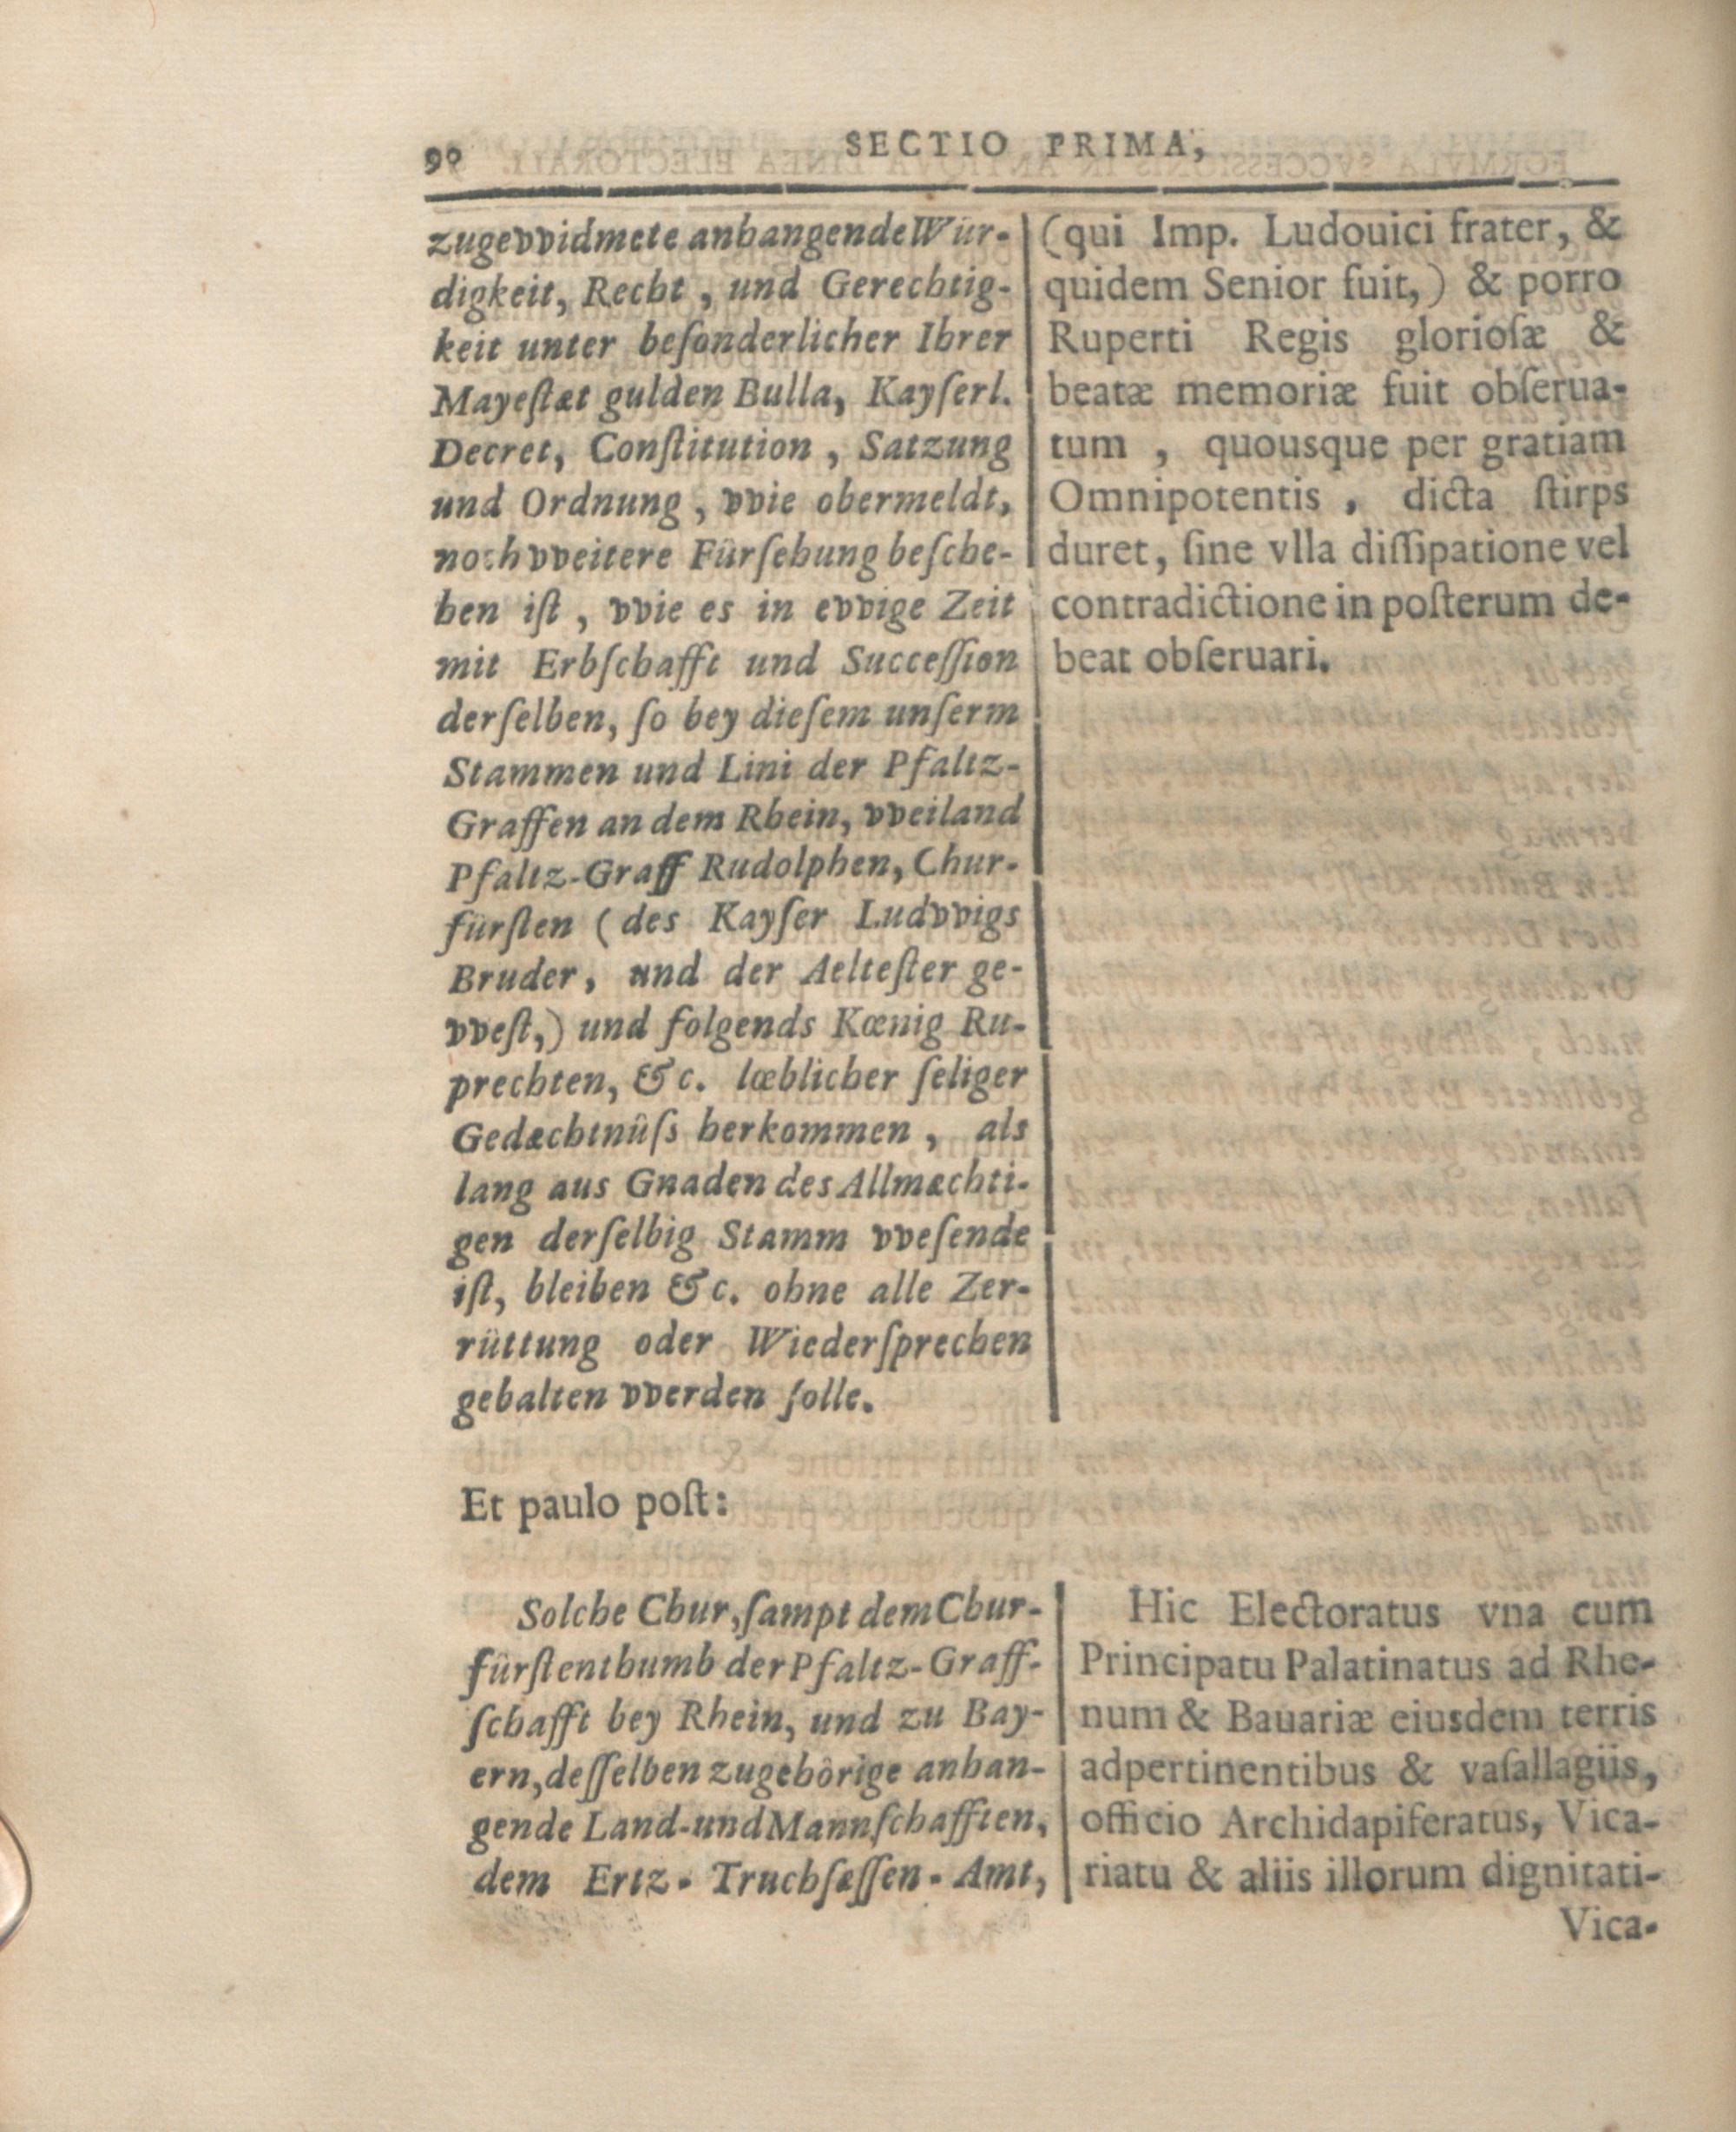 90 SECTIO PRIMA,
zugevvidmete anhangende Wür-
digkeit, Recht, und Gerechtig-
keit unter beſonderlicher Ihrer
Mayeſtæt gulden Bulla, Kayſerl.
Decret, Conſtitution, Satzung
und Ordnung, vvie obermeldt,
noch vveitere Fürſehung beſche-
hen iſt, vvie es in evvige Zeit
mit Erbſchafft und Succeſſion
derſelben, ſo bey dieſem unſerm
Stammen und Lini der Pfaltz-
Graffen an dem Rhein, vveiland
Pfaltz-Graff Rudolphen, Chur-
fürſten (des Kayſer Ludvvigs
Bruder, und der Aelteſter ge-
vveſt,) und folgends Kœnig Ru-
prechten, &c. lœblicher ſeliger
Gedæchtnûſs herkommen, als
lang aus Gnaden des Allmæchti-
gen derſelbig Stamm vveſende
iſt, bleiben &c. ohne alle Zer-
rüttung oder Wiederſprechen
gehalten vverden ſolle.
(qui Imp. Ludouici frater, &
quidem Senior fuit,) & porro
Ruperti Regis glorioſæ &
beatæ memoriæ fuit obſerua-
tum, quousque per gratiam
Omnipotentis, dicta ſtirps
duret, ſine vlla diſſipatione vel
contradictione in poſterum de-
beat obſeruari.
Et paulo poſt:
Solche Chur, ſampt dem Chur-
fürſtenthumb der Pfaltz-Graff-
ſchafft bey Rhein, und zu Bay-
ern, deſſelben zugehôrige anhan-
gende Land-und Mannſchafften,
dem Ertz-Truchſæſſen-Amt,
Hic Electoratus vna cum
Principatu Palatinatus ad Rhe-
num & Bauariæ eiusdem terris
adpertinentibus & vaſallagiis,
officio Archidapiferatus, Vica-
riatu & aliis illorum dignitati-
Vica-